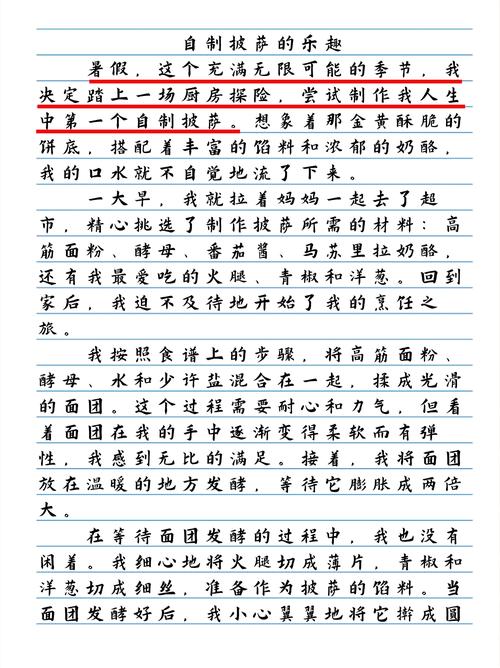 自制披萨的乐趣
暑假，这个充满无限可能的季节，我
决定踏上一场厨房探险，尝试制作我人生
中第一个自制披萨。想象着那金黄酥脆的
饼底，搭配着丰富的馅料和浓郁的奶酪，
我的口水就不自觉地流了下来。
一大早，我就拉着妈妈一起去了超
市，精心挑选了制作披萨所需的材料：高
筋面粉、酵母、番茄酱、马苏里拉奶酪，
还有我最爱吃的火腿、青椒和洋葱。回到
家后，我迫不及待地开始了我的烹饪之
旅。
我按照食谱上的步骤，将高筋面粉、
酵母、水和少许盐混合在一起，揉成光滑
的面团。这个过程需要耐心和力气，但看
着面团在我的手中逐渐变得柔软而有弹
性，我感到无比的满足。接着，我将面团
放在温暖的地方发酵，等待它膨胀成两倍
大。
在等待面团发酵的过程中，我也没有
闲着。我细心地将火腿切成薄片，青椒和
洋葱切成细丝，准备作为披萨的馅料。当
面团发酵好后，我小心翼翼地将它擀成圆